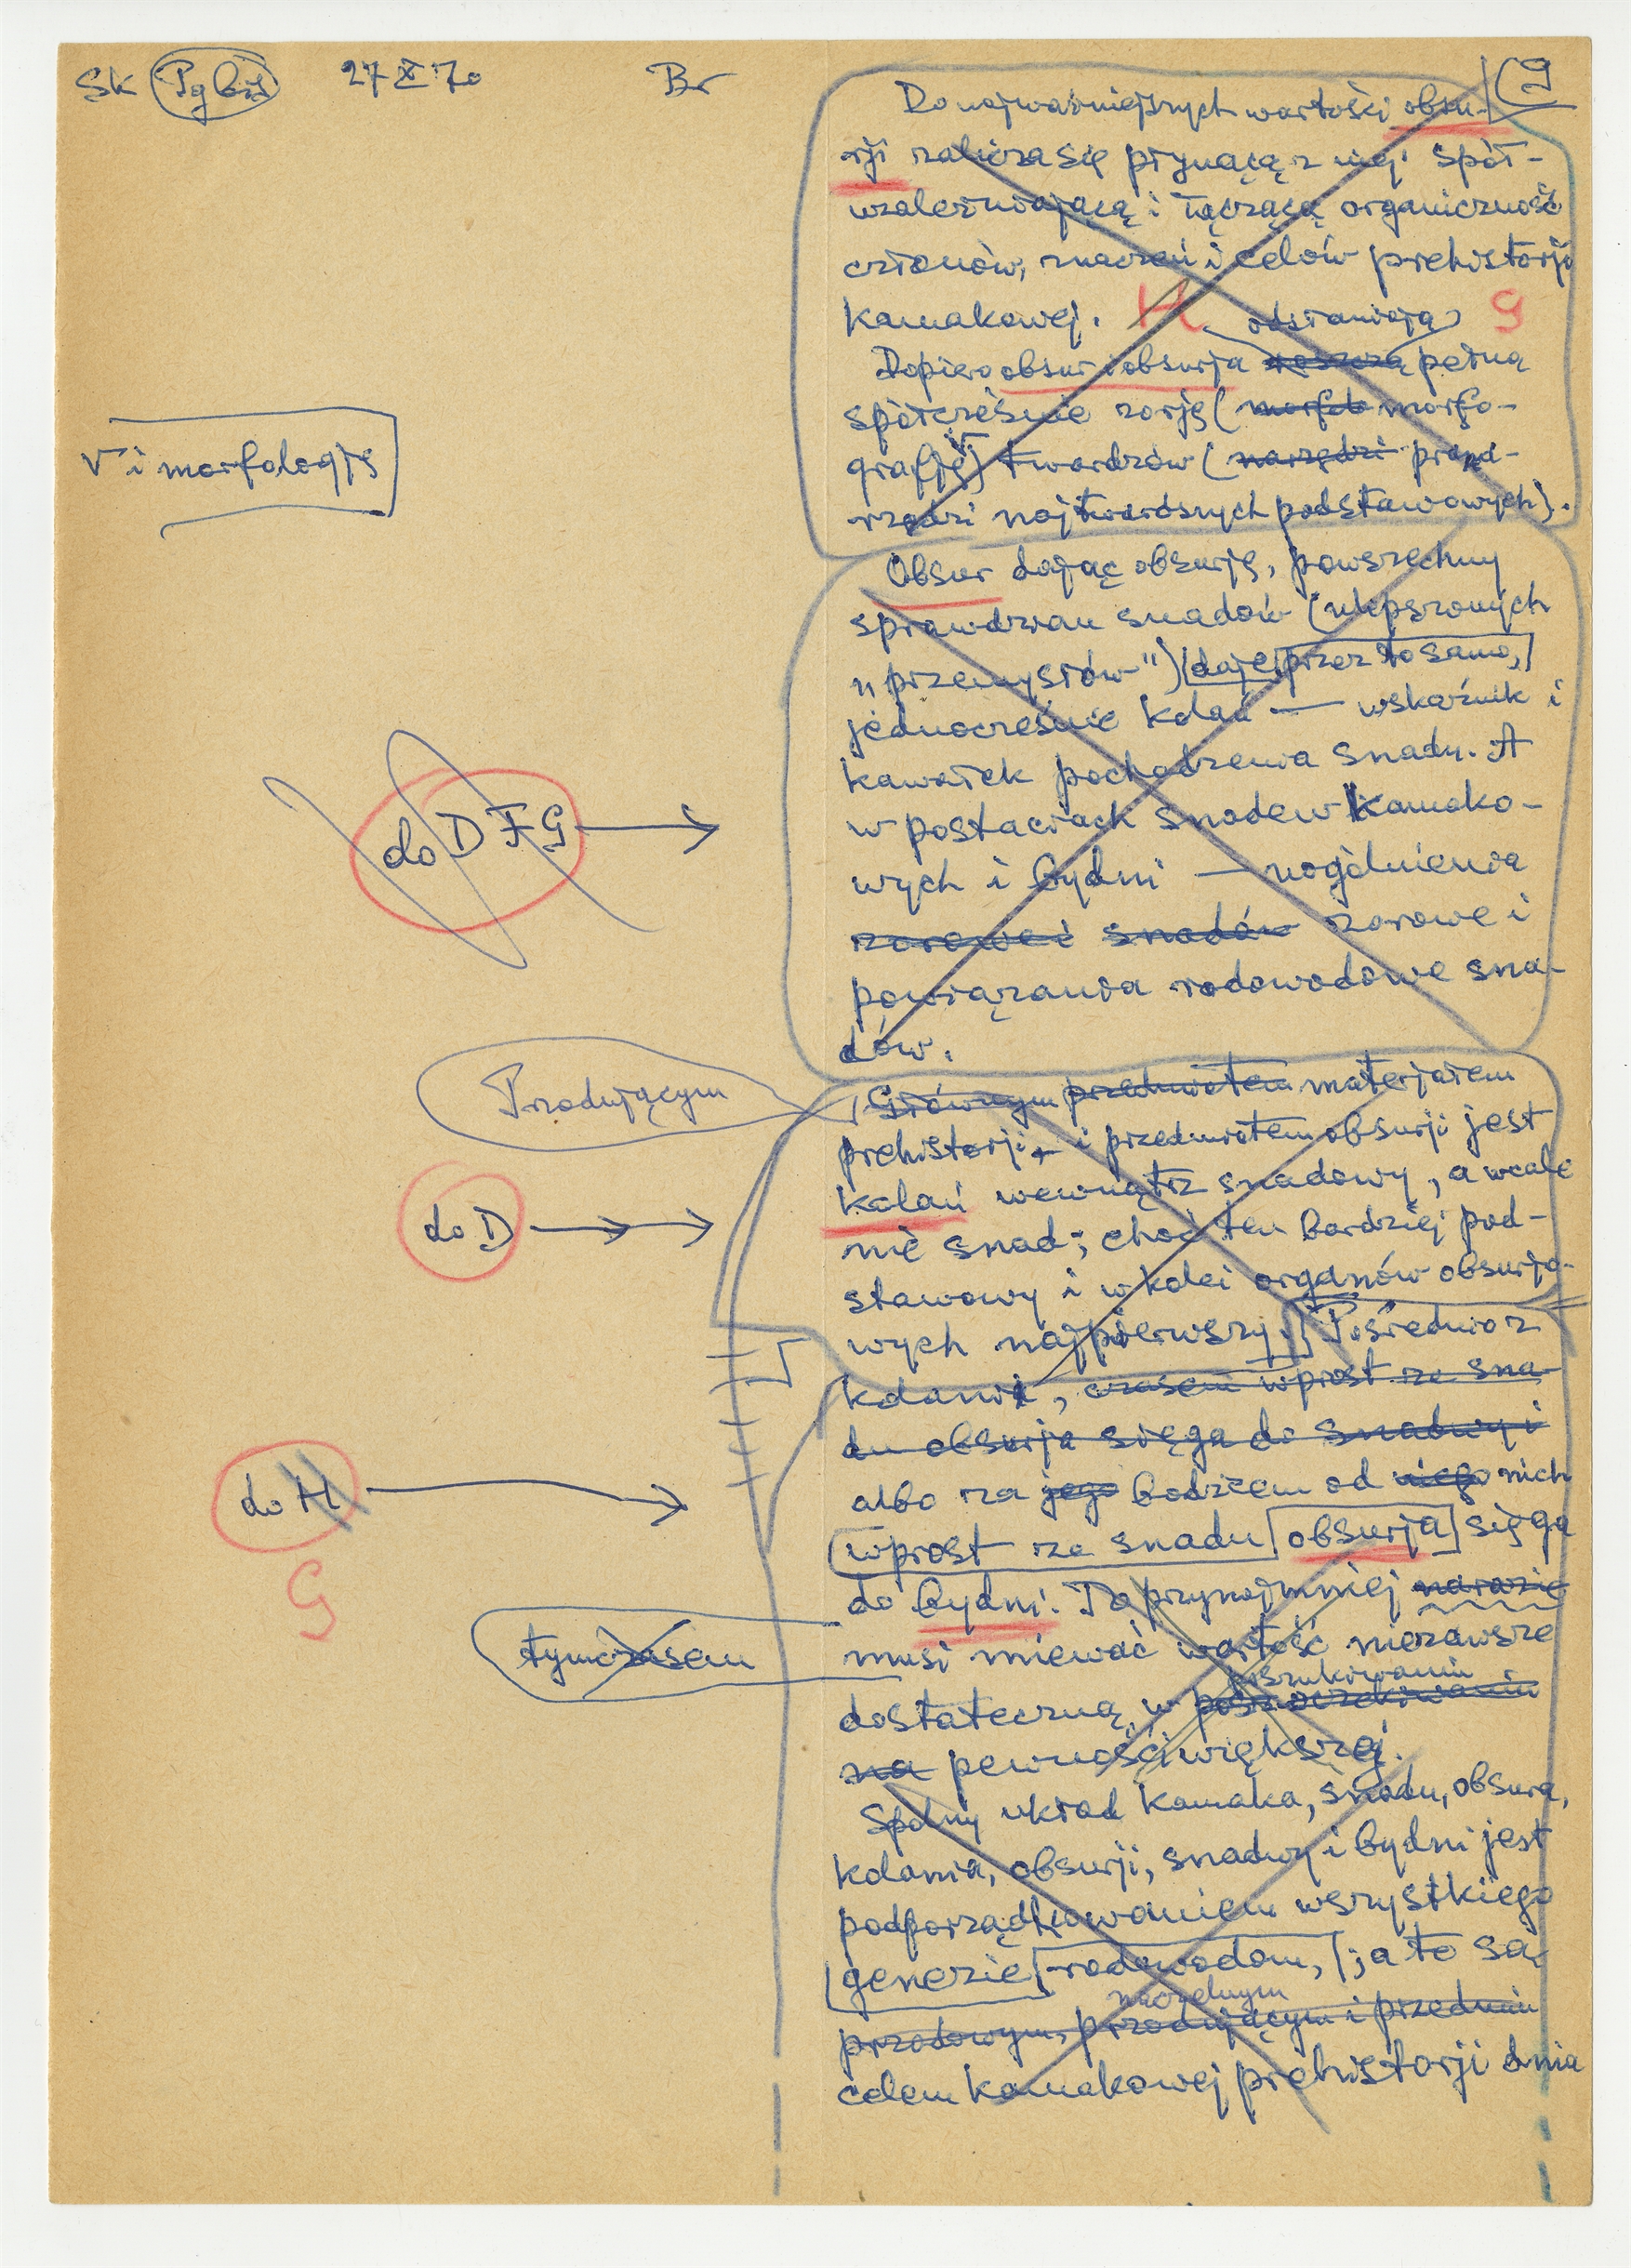 Sk Pg 27 X 70 Br 9
Do najważniejszych wartości obsu-
rji zalicza się płynącą z niej spół-
uzależniającą i łączącą organiczność
członów, znaczeń i celów prehistorji
kamakowej. H 9
odsłaniają
Dopiero obsur i obsurja pełną
spółcześnie zorję ( morfo-
grafję) twardzów (narzędzi prand-
rzędzi najtwardszych podstawowych).
V i morfologję
Obsur dając obsurję, powszechny
sprawdzian snadów (ulepszonych
"przemysłów") daje przez to samo,
jednocześnie kdań — wskaźnik i
kawałek pochodzenia snadu. A
w postaciach snadew kamako-
do D F G
wych i bydni — uogólnienia
zorowe i snadów zorowe i
powiązania rodowodowe sna-
dów.
Przodującym
Głównym przedmiotem materjałem
prehistorji i przedmiotem obsurji jest
kdań wewnątrz snadowy, a wcale
do D
nie snad; choć ten bardziej pod-
stawowy i w kolei organów obsurjo-
wych najpierwszy. Pośrednio z
kdani, czasem wprost ze sna-
du obsurja sięga do snadwy i
do H
albo za jego bodźcem od niego nich
wprost ze snadu obsurja sięga
G
do bydni. To przynajmniej narazie
tymczasem
musi miewać wartość niezawsze
poszukiwaniu
dostateczną w
na pewności większej.
Spólny układ kamaka, snadu, obsura,
kdania, obsurji, snadwy i bydni jest
podporządkowaniem wszystkiego
genezie rodowodom, ; a to są
naczelnym
przodowym, przodującym i przednim
celem kamakowej prehistorji dnia